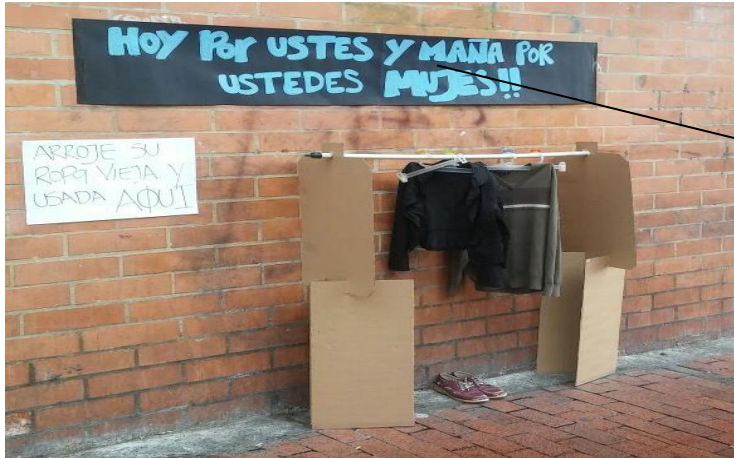 HOY POR USTES Y MAÑA POR
USTEDES MUJES!!
ARROJE SU
ROPA VIEJA Y
USADA AQUÍ